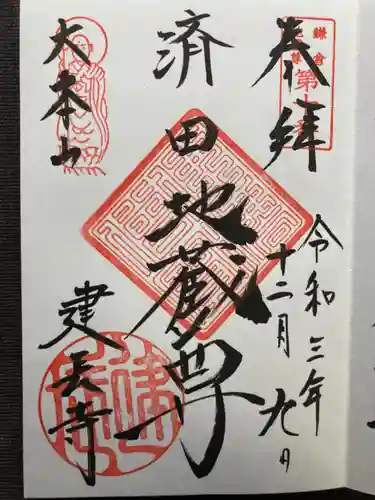 奉拝
令和三年
十二月九日
済田地蔵尊
大本山
建長寺
鎌倉